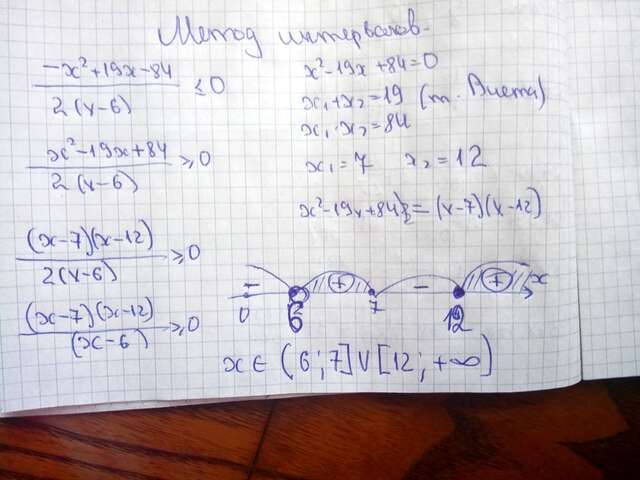 Метод интервалов.
(-x²+19x-84)/(2(x-6)) ≤ 0
(x²-19x+84)/(2(x-6)) ≥ 0
((x-7)(x-12))/(2(x-6)) ≥ 0
((x-7)(x-12))/((x-6)) ≥ 0
x²-19x+84=0
x₁+x₂=19 (т. Виета)
x₁·x₂=84
x₁=7 x₂=12
x²-19x+84=(x-7)(x-12)
- + - + x
0 6 7 12
x∈(6;7]∪[12;+∞)